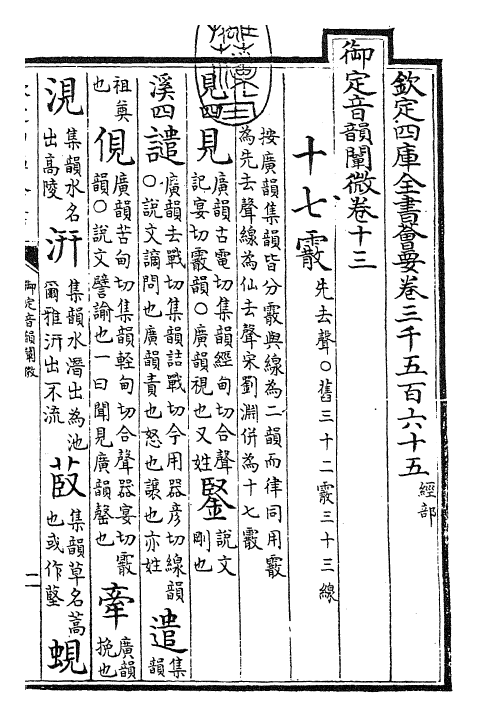 欽定四庫全書薈要卷三千五百六十五 經部
御定音韻闡微卷十三
十七霰 先去聲○舊三十二霰三十三線
按廣韻集韻皆分霰與線為二韻而律同用霰
為先去聲線為仙去聲宋劉淵併為十七霰
見四 見 廣韻古電切集韻經甸切合聲
記宴切霰韻○廣韻視也又姓 鋻 說文
剛也
溪四 譴 廣韻去戰切集韻詰戰切今用器彦切線韻
○說文謫問也廣韻責也怒也讓也亦姓 遣 集韻
祖奠也 俔 廣韻苦甸切集韻輕甸切合聲器宴切霰
韻○說文譬諭也一曰聞見廣韻罄也 牽 廣韻
挽也
涀 集韻水名
出高陵 汧 集韻水潛出為池
爾雅汧出不流 菣 集韻草名蒿
也或作䕙 蜆
御定音韻闡微
二